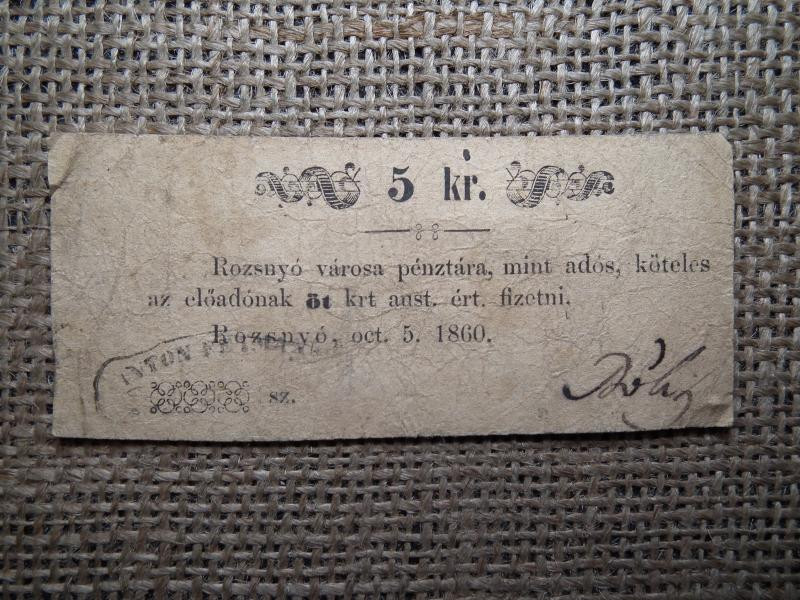 5 kr.
Rozsnyó városa pénztára, mint adós, köteles
az előadónak öt krt aust. ért. fizetni.
Rozsnyó, oct. 5. 1860.
sz.